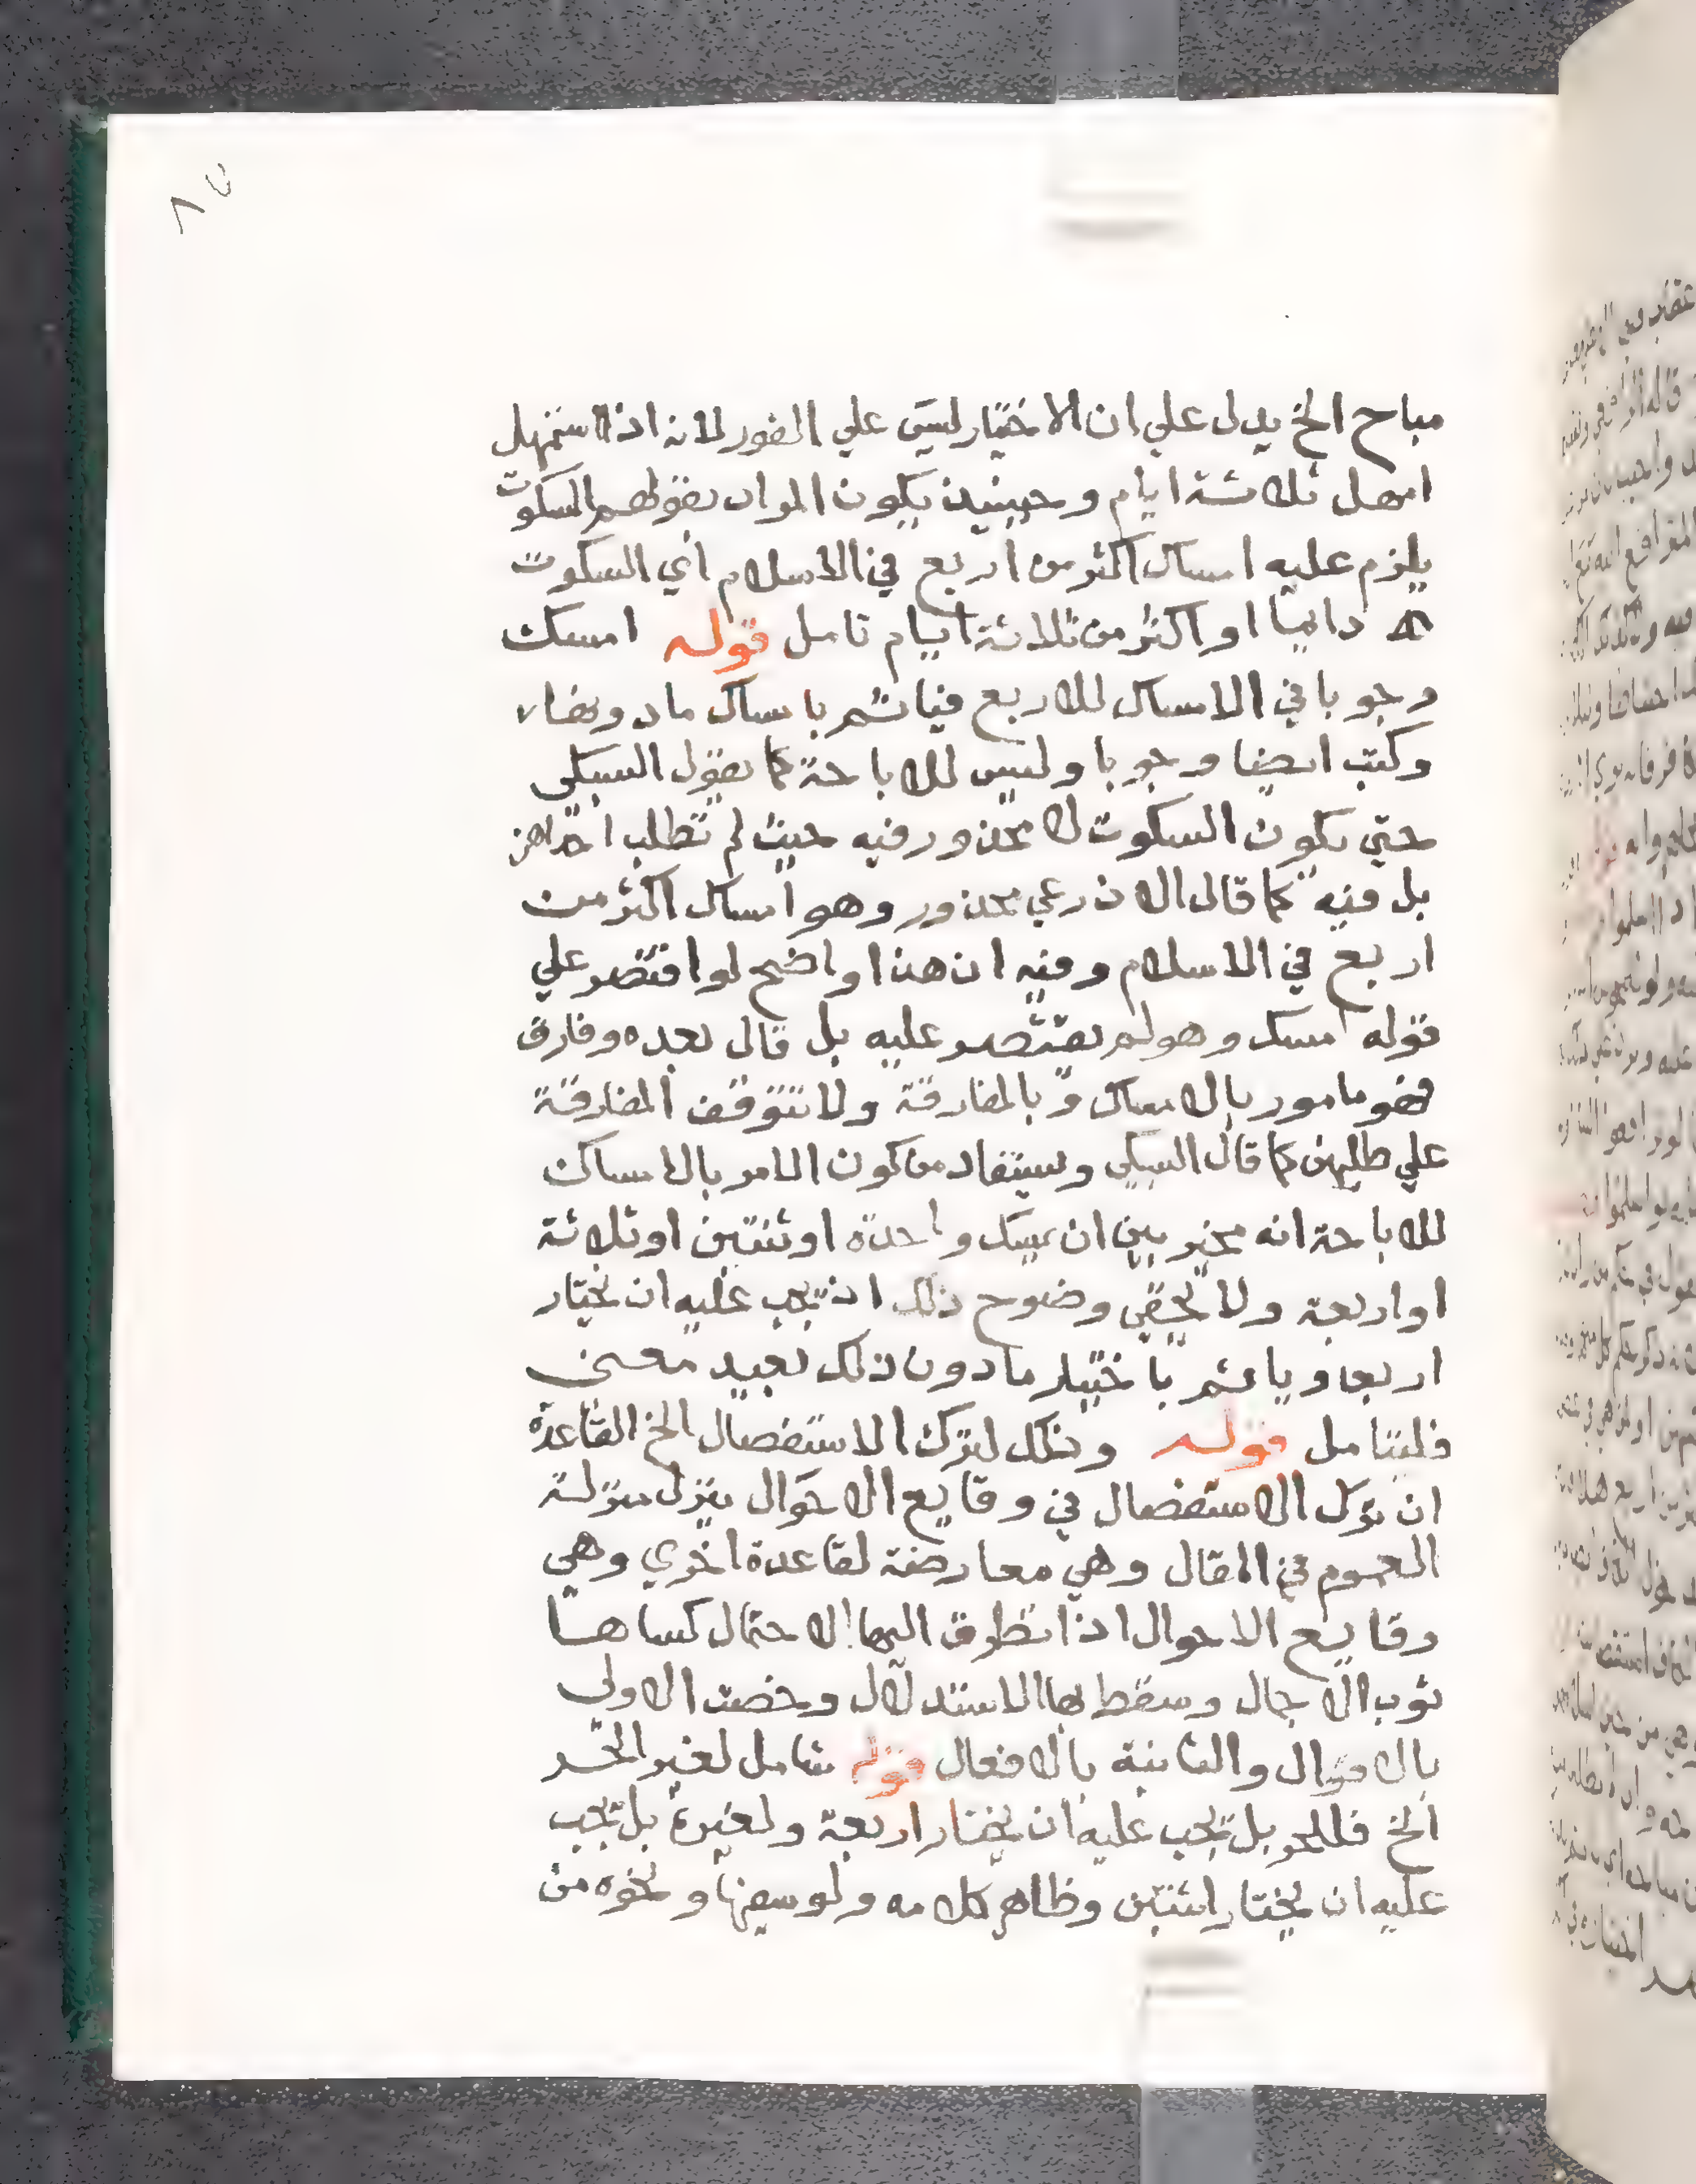 ٨٥
مباح الخ يدل علي ان الاختيار ليس علي الفور لانه اذا استمهل
امهل ثلاثة ايام وحينيذ يكون المراد بقولهم السكوت
يلزم عليه امساك اكثر من اربع في الاسلام أي السكوت
دايما او اكثر من ثلاثة ايام تامل قوله امسك
وجوبا في الامساك للاربع فيأثم بامساك ما دونها
وكتب ايضا وجوبا وليس للاباحة كما يقول السبكي
حتي يكون السكوت لا محذور فيه حيث لم تطلب احداهن
بل فيه كما قال الاذرعي محذور وهو امساك اكثر من
اربع في الاسلام وفيه ان هذا واضح لو اقتصر علي
قوله امسك وهو لم يقتصر عليه بل قال بعده وفارق
فهو مامور بالامساك وبالمفارقة ولا تتوقف المفارقة
علي طلبهن كما قال السبكي ويستفاد من كون الامر بالامساك
للاباحة انه مخير بين ان يمسك واحدة او ثنتين او ثلاثة
او اربعة ولا يخفي وضوح ذلك اذ يجب عليه ان يختار
اربعا وياثم باختيار ما دون ذلك بعيد معني
فليتامل قوله وذلك لترك الاستفصال الخ القاعدة
ان ترك الاستفصال في وقايع الاحوال ينزل منزلة
العموم في المقال وهي معارضة لقاعدة اخري وهي
وقايع الاحوال اذا تطرق اليها الاحتمال كساها
ثوب الاجمال وسقط بها الاستدلال وخصت الاولي
بالاقوال والثانية بالافعال قوله شامل لغير الحر
الخ فللحر بل يجب عليه ان يختار اربعة ولغيره بل يجب
عليه ان يختار اثنتين وظاهر كلامه ولو سفيها ونحوه من